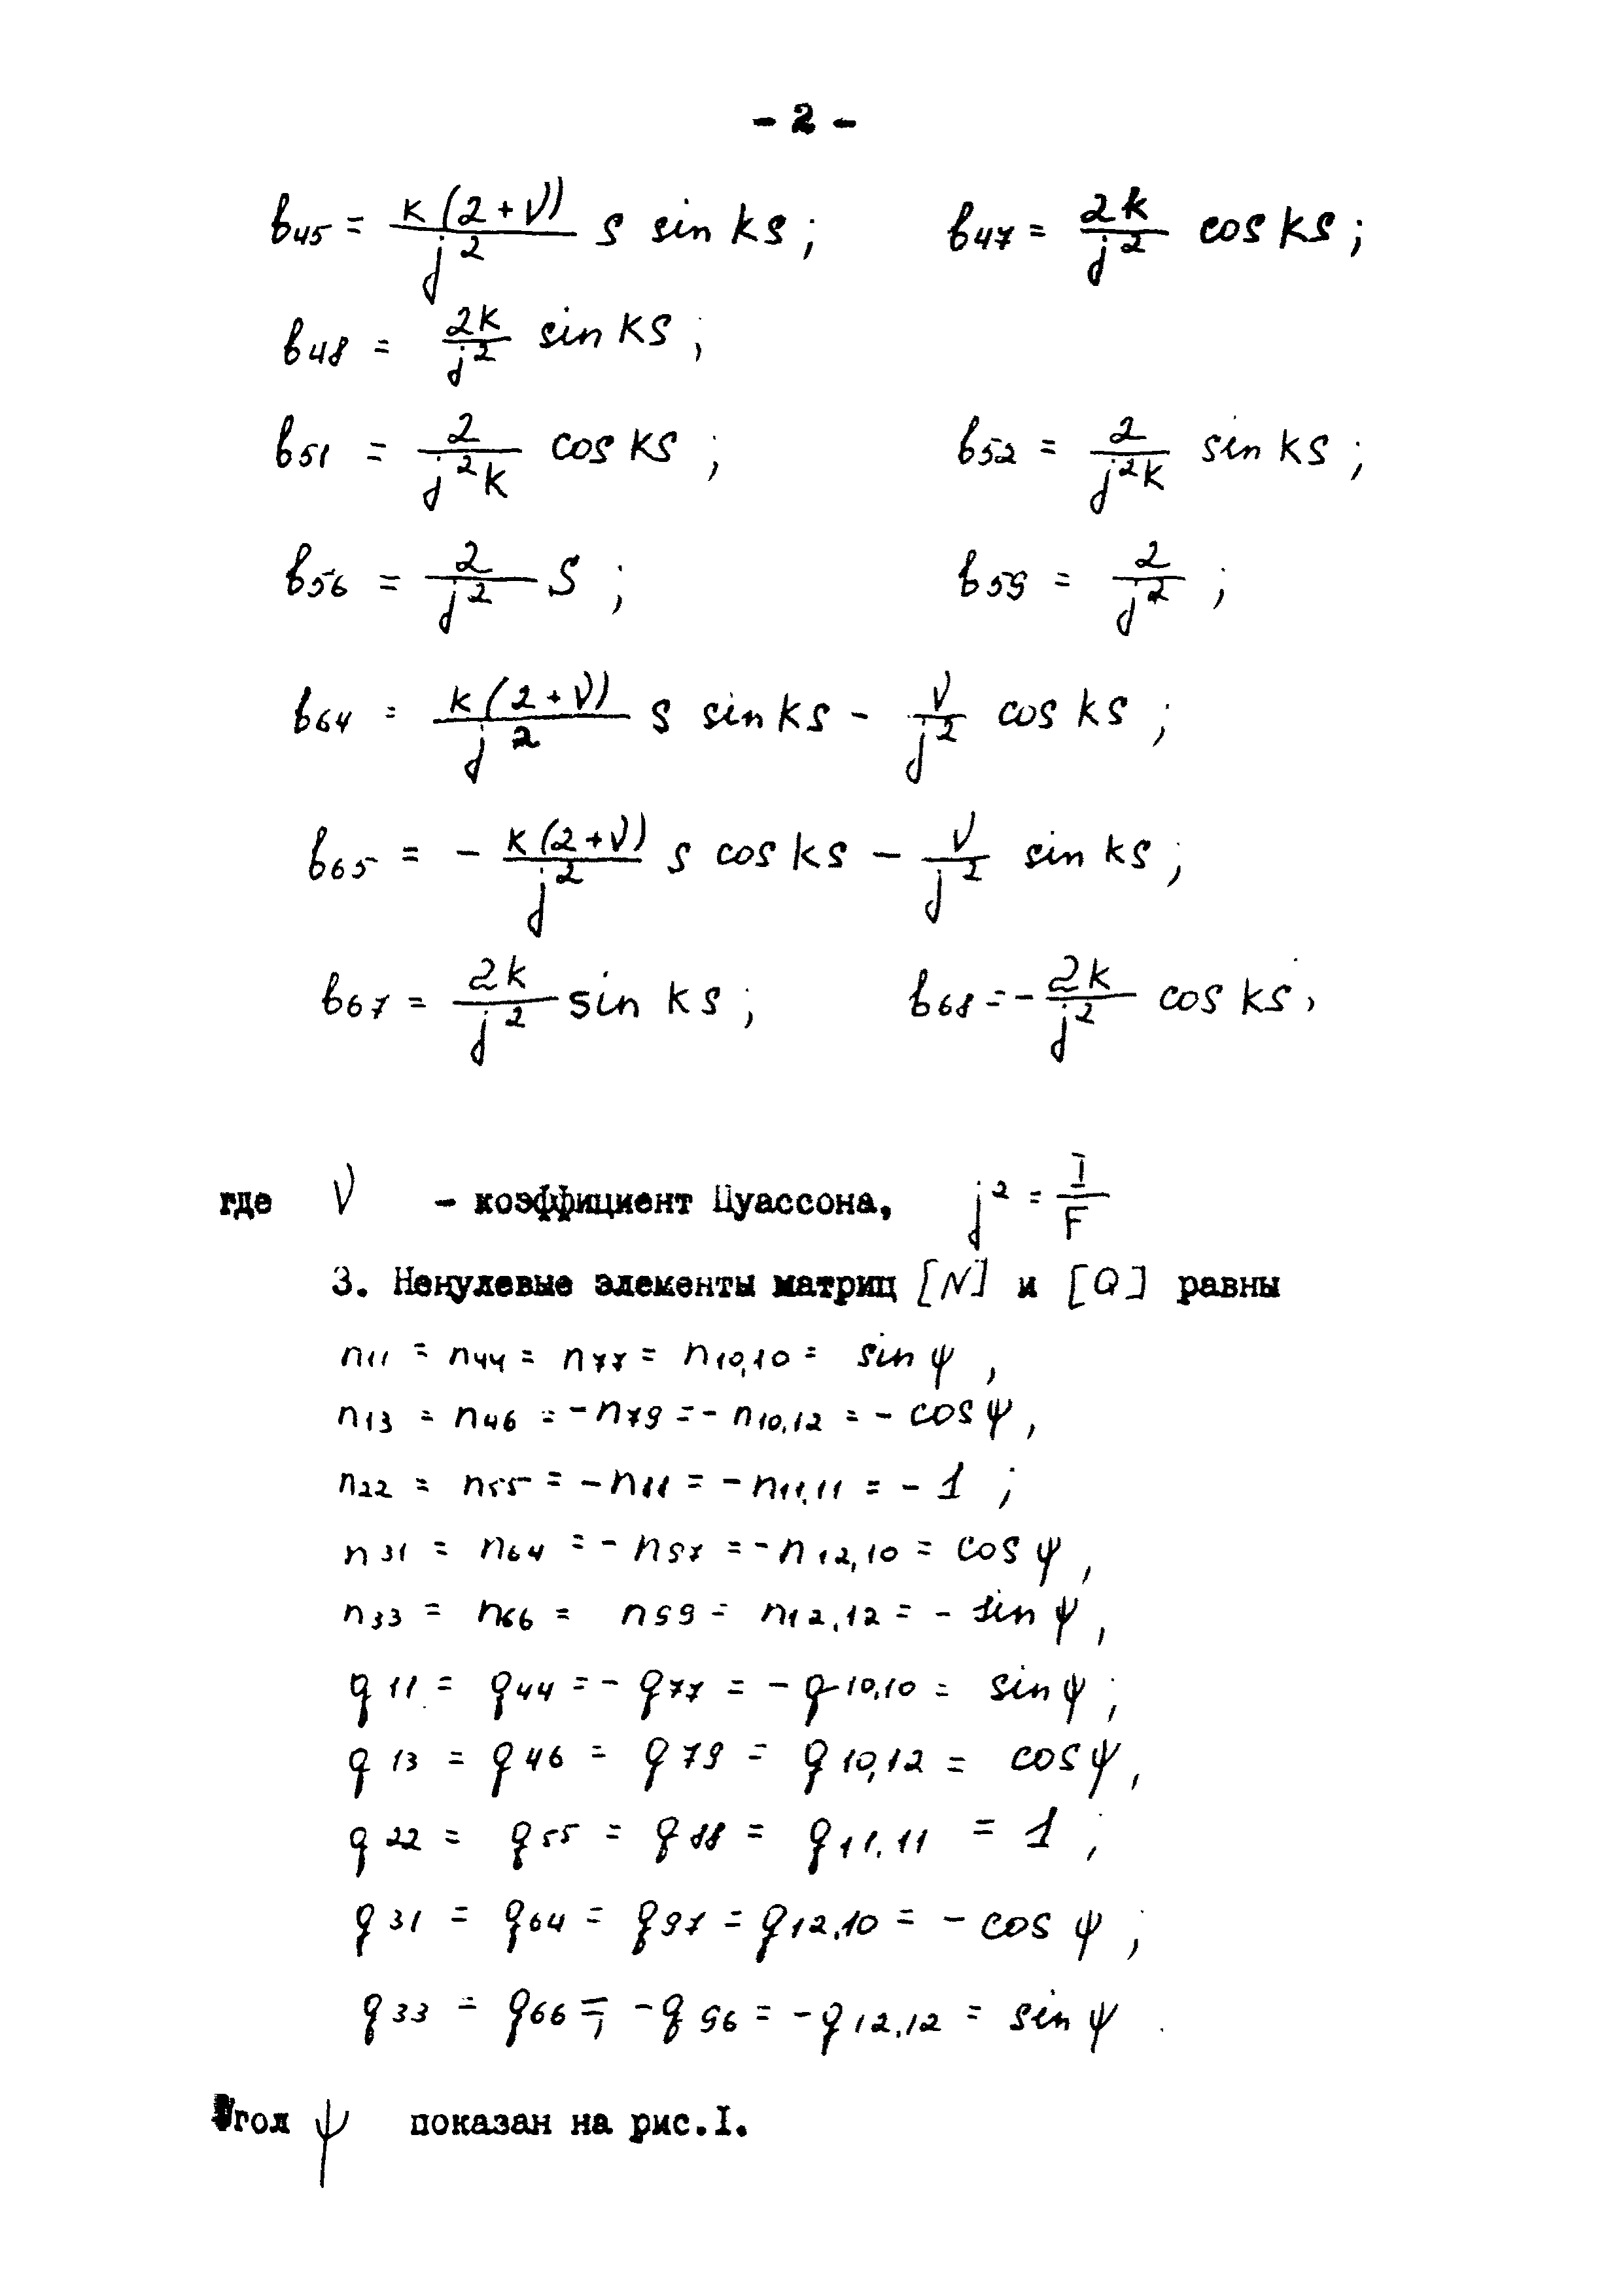 - 2 -
b₄₅ = k(2+ν)/j² s sin ks ; b₄₇ = 2k/j² cos ks ;
b₄₈ = 2k/j² sin ks ;
b₅₁ = 2/(j²k) cos ks ; b₅₂ = 2/(j²k) sin ks ;
b₅₆ = 2/j² s ; b₅₉ = 2/j² ;
b₆₄ = k(2+ν)/j² s sin ks - ν/j² cos ks ;
b₆₅ = - k(2+ν)/j² s cos ks - ν/j² sin ks ;
b₆₇ = 2k/j² sin ks ; b₆₈ = - 2k/j² cos ks ,
где ν - коэффициент Пуассона, j² = I/F
3. Ненулевые элементы матриц [N] и [Q] равны
n₁₁ = n₄₄ = n₇₇ = n₁₀,₁₀ = sin ψ ,
n₁₃ = n₄₆ = -n₇₉ = -n₁₀,₁₂ = - cos ψ ,
n₂₂ = n₅₅ = -n₈₈ = -n₁₁,₁₁ = - 1 ;
n₃₁ = n₆₄ = -n₉₇ = -n₁₂,₁₀ = cos ψ ,
n₃₃ = n₆₆ = n₉₉ = n₁₂,₁₂ = - sin ψ ,
q₁₁ = q₄₄ = -q₇₇ = -q₁₀,₁₀ = sin ψ ;
q₁₃ = q₄₆ = q₇₉ = q₁₀,₁₂ = cos ψ ,
q₂₂ = q₅₅ = q₈₈ = q₁₁,₁₁ = 1 ;
q₃₁ = q₆₄ = q₉₇ = q₁₂,₁₀ = - cos ψ ;
q₃₃ = q₆₆ = -q₉₆ = -q₁₂,₁₂ = sin ψ .
Угол ψ показан на рис.I.